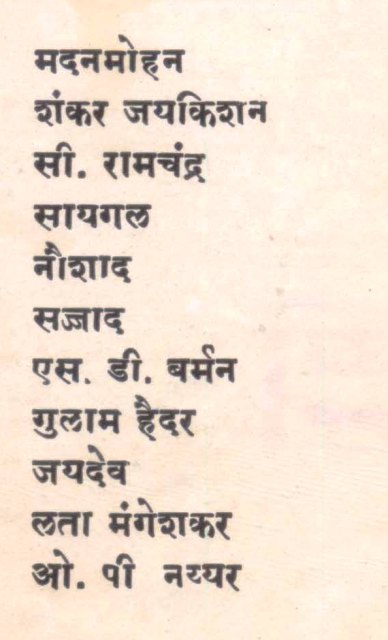 मदनमोहन
शंकर जयकिशन
सी. रामचंद्र
सायगल
नौशाद
सज्जाद
एस. डी. बर्मन
गुलाम हैदर
जयदेव
लता मंगेशकर
ओ. पी नय्यर